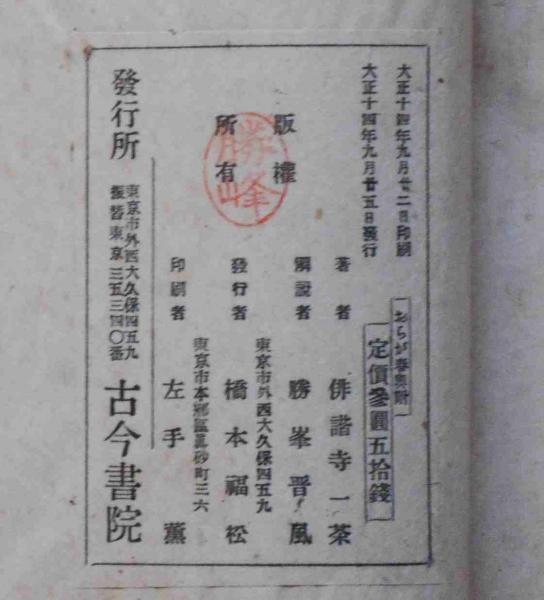 大正十四年九月廿二日印刷
大正十四年九月廿五日發行
おらが春奧附
定價參圓五拾錢
版權
所有
勝峯
著者 俳諧寺一茶
解說者 勝峯晋風
東京市外西大久保四五九
發行者 橋本福松
東京市本鄕區眞砂町三六
印刷者 左手薰
發行所 東京市外西大久保四五九
振替東京三五三四〇番
古今書院